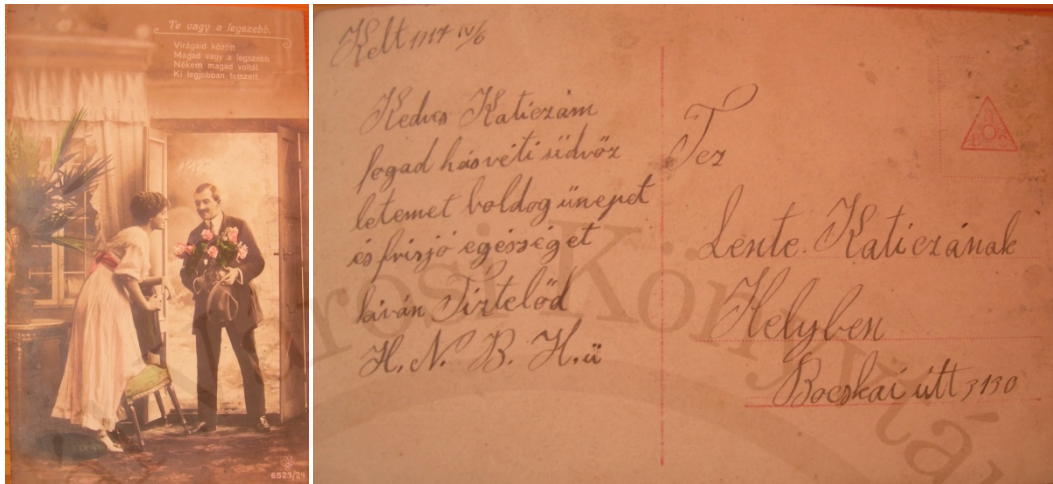 Te vagy a legszebb.
Virágaid között
Magad vagy a legszebb
Nékem magad voltál
Ki legjobban tetszett.
6523/24
Kelt 1917 IV/6
Kedves Katiczám
fogad húsvéti üdvöz
letemet boldog ünepet
és frisjó egésséget
kiván Tisztelőd
H. N. B. H. ü
Tez
Lente. Katiczának
Helyben
Bocskai útt 3130
Városi Könyvtár